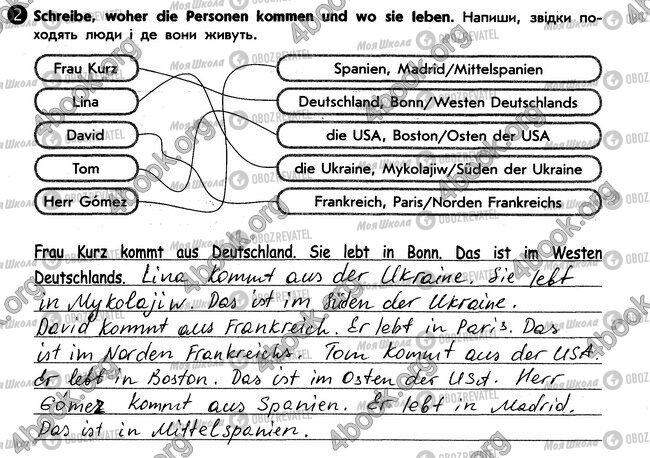 2 Schreibe, woher die Personen kommen und wo sie leben. Напиши, звідки по-
ходять люди і де вони живуть.
Frau Kurz
Spanien, Madrid/Mittelspanien
Lina
Deutschland, Bonn/Westen Deutschlands
David
die USA, Boston/Osten der USA
Tom
die Ukraine, Mykolajiw/Süden der Ukraine
Herr Gómez
Frankreich, Paris/Norden Frankreichs
Frau Kurz kommt aus Deutschland. Sie lebt in Bonn. Das ist im Westen
Deutschlands. Lina kommt aus der Ukraine. Sie lebt
in Mykolajiw. Das ist im Süden der Ukraine.
David kommt aus Frankreich. Er lebt in Paris. Das
ist im Norden Frankreichs. Tom kommt aus der USA.
Er lebt in Boston. Das ist im Osten der USA. Herr
Gómez kommt aus Spanien. Er lebt in Madrid.
Das ist in Mittelspanien.
4book.org
Моя Школа
OBOZREVATEL